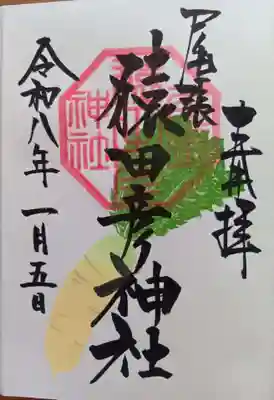 奉拝
尾張
猿田彦神社
令和八年 一月五日
神社